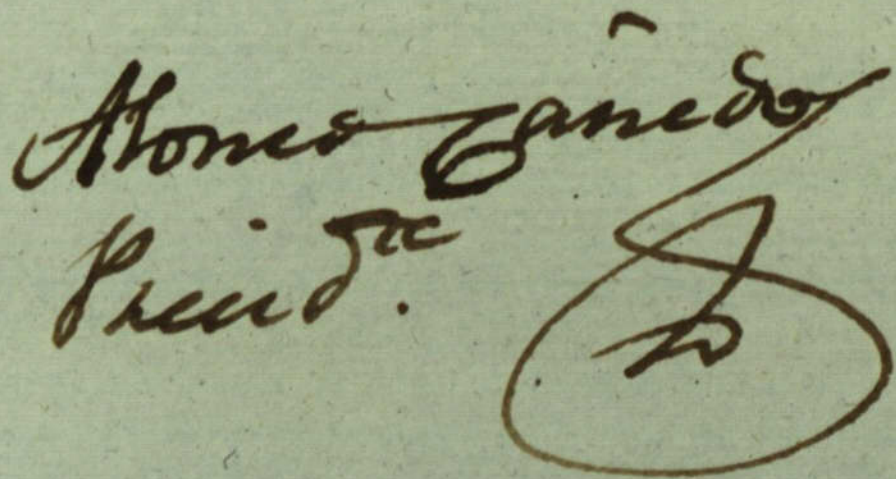 Alonso Cañedo
Presid.te